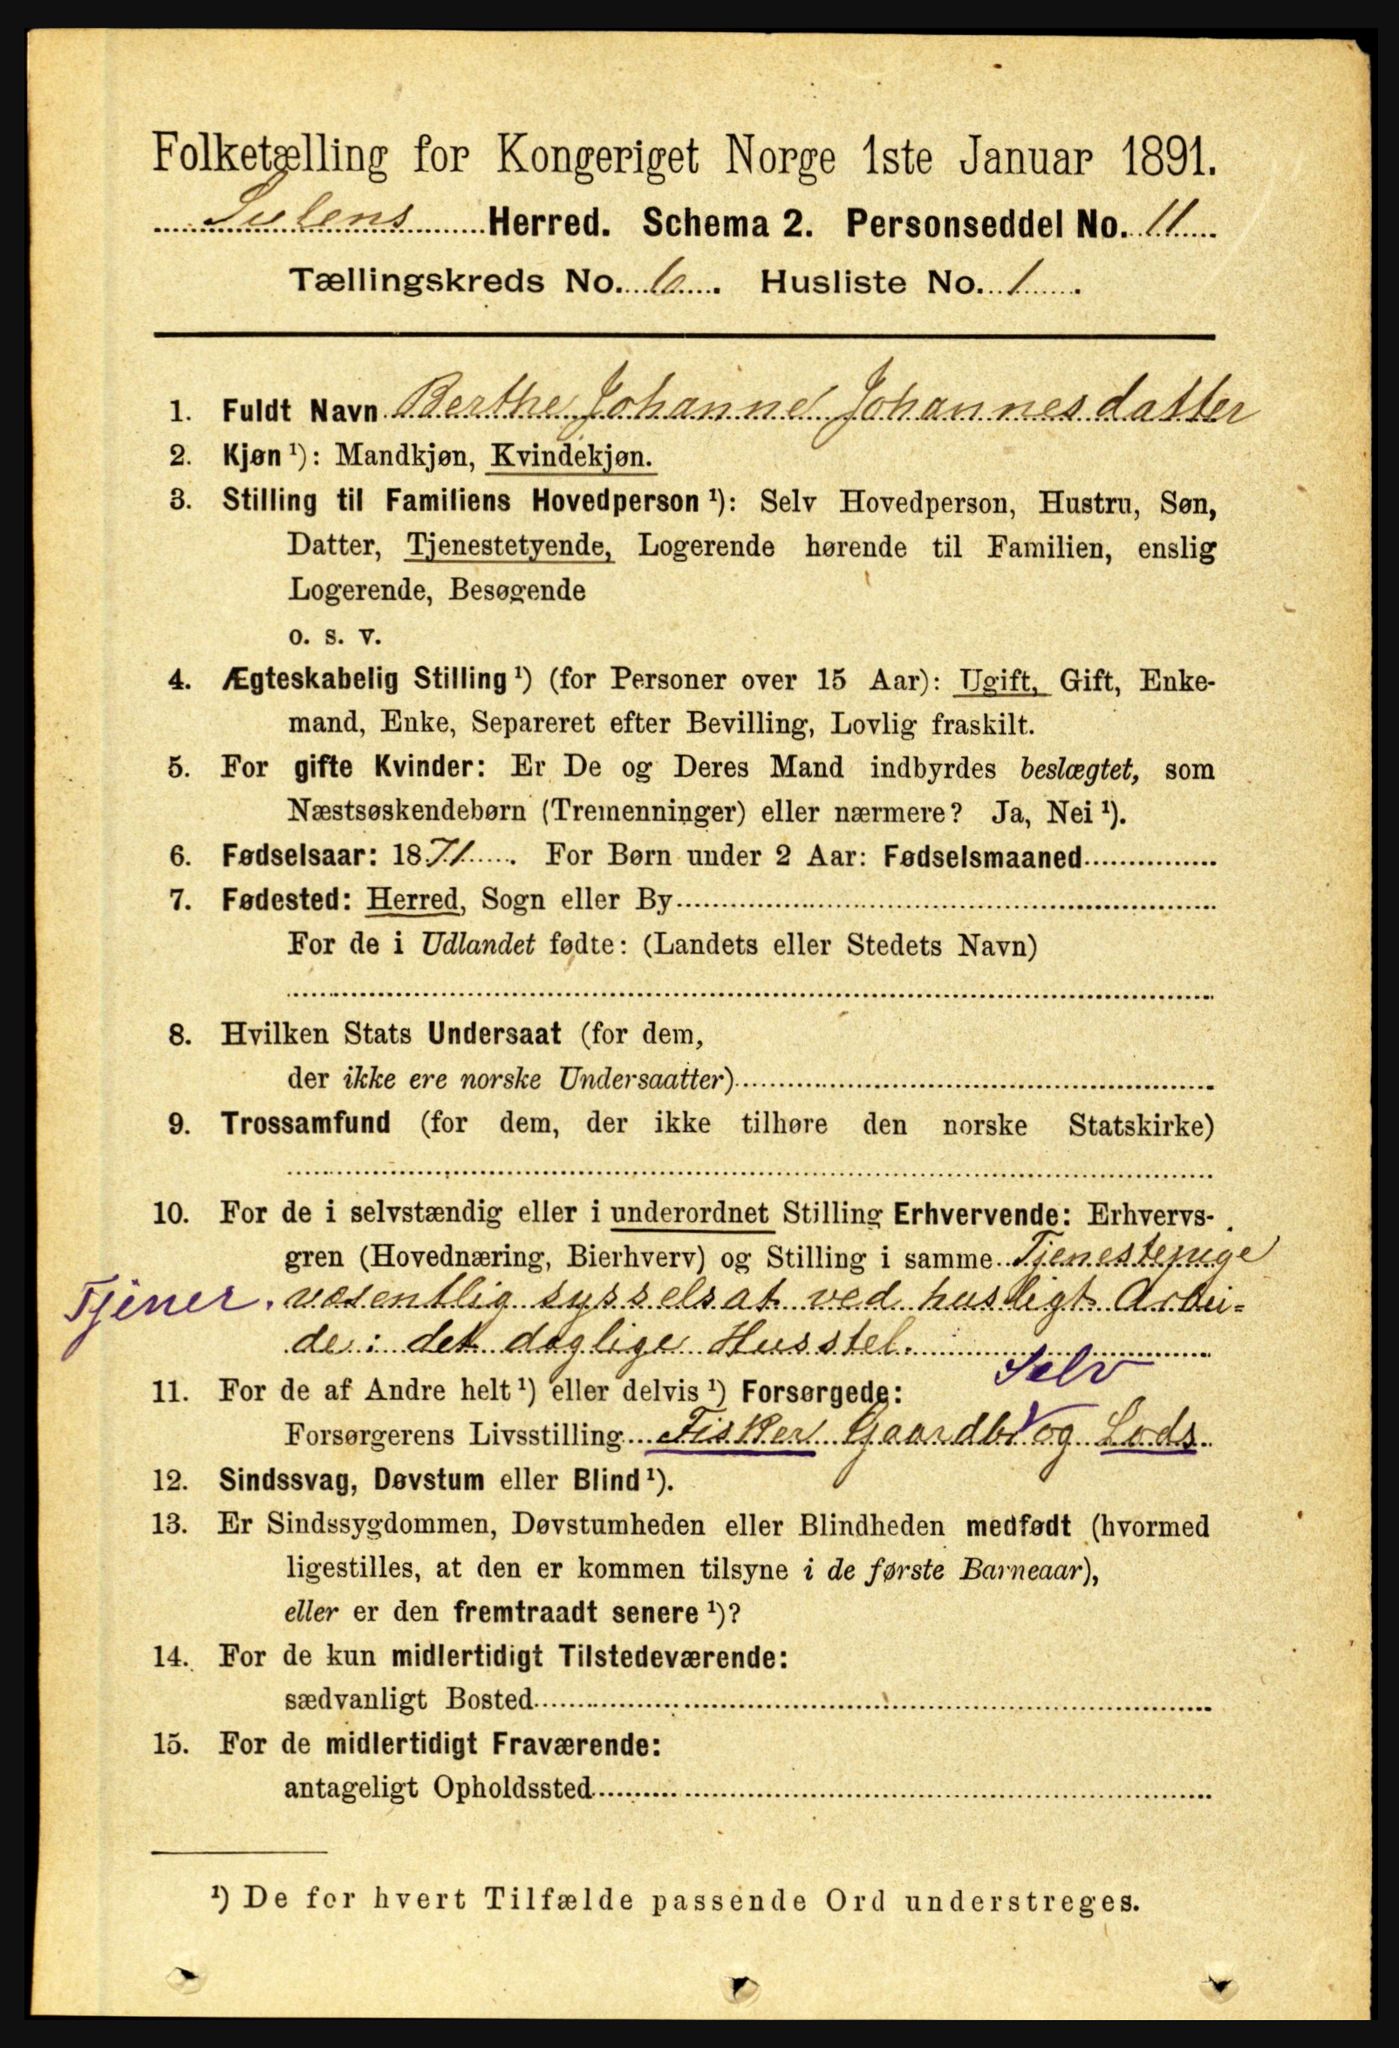 Folketælling for Kongeriget Norge 1ste Januar 1891.
Sulens Herred. Schema 2. Personseddel No. 11
Tællingskreds No. 6. Husliste No. 1.
1. Fuldt Navn Berthe Johanne Johannesdatter
2. Kjøn ¹): Mandkjøn, Kvindekjøn.
3. Stilling til Familiens Hovedperson ¹): Selv Hovedperson, Hustru, Søn,
Datter, Tjenestetyende, Logerende hørende til Familien, enslig
Logerende, Besøgende
o. s. v.
4. Ægteskabelig Stilling ¹) (for Personer over 15 Aar): Ugift, Gift, Enke-
mand, Enke, Separeret efter Bevilling, Lovlig fraskilt.
5. For gifte Kvinder: Er De og Deres Mand indbyrdes beslægtet, som
Næstsøskendebørn (Tremenninger) eller nærmere? Ja, Nei ¹).
6. Fødselsaar: 1871. For Børn under 2 Aar: Fødselsmaaned
7. Fødested: Herred, Sogn eller By
For de i Udlandet fødte: (Landets eller Stedets Navn)
8. Hvilken Stats Undersaat (for dem,
der ikke ere norske Undersaatter)
9. Trossamfund (for dem, der ikke tilhøre den norske Statskirke)
10. For de i selvstændig eller i underordnet Stilling Erhvervende: Erhvervs-
gren (Hovednæring, Bierhverv) og Stilling i samme Tjenestepige
Tjener. væsentlig sysselsat ved husligt Arbei=
de: det daglige Husstel.
Selv
11. For de af Andre helt ¹) eller delvis ¹) Forsørgede:
Forsørgerens Livsstilling Fisker Gaardbr og Lods
12. Sindssvag, Døvstum eller Blind ¹).
13. Er Sindssygdommen, Døvstumheden eller Blindheden medfødt (hvormed
ligestilles, at den er kommen tilsyne i de første Barneaar),
eller er den fremtraadt senere ¹)?
14. For de kun midlertidigt Tilstedeværende:
sædvanligt Bosted
15. For de midlertidigt Fraværende:
antageligt Opholdssted
¹) De for hvert Tilfælde passende Ord understreges.